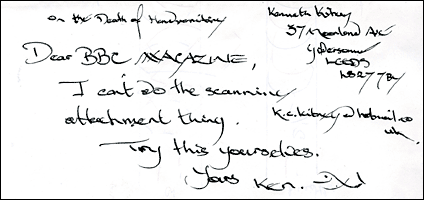 on the Death of Handwriting
Kenneth
37 Moorland Ave
LEEDS
Dear BBC MAGAZINE,
I can't do the scanning
attachment thing.
@ hotmail.co
uk
Try this yourselves.
Yours Ken.